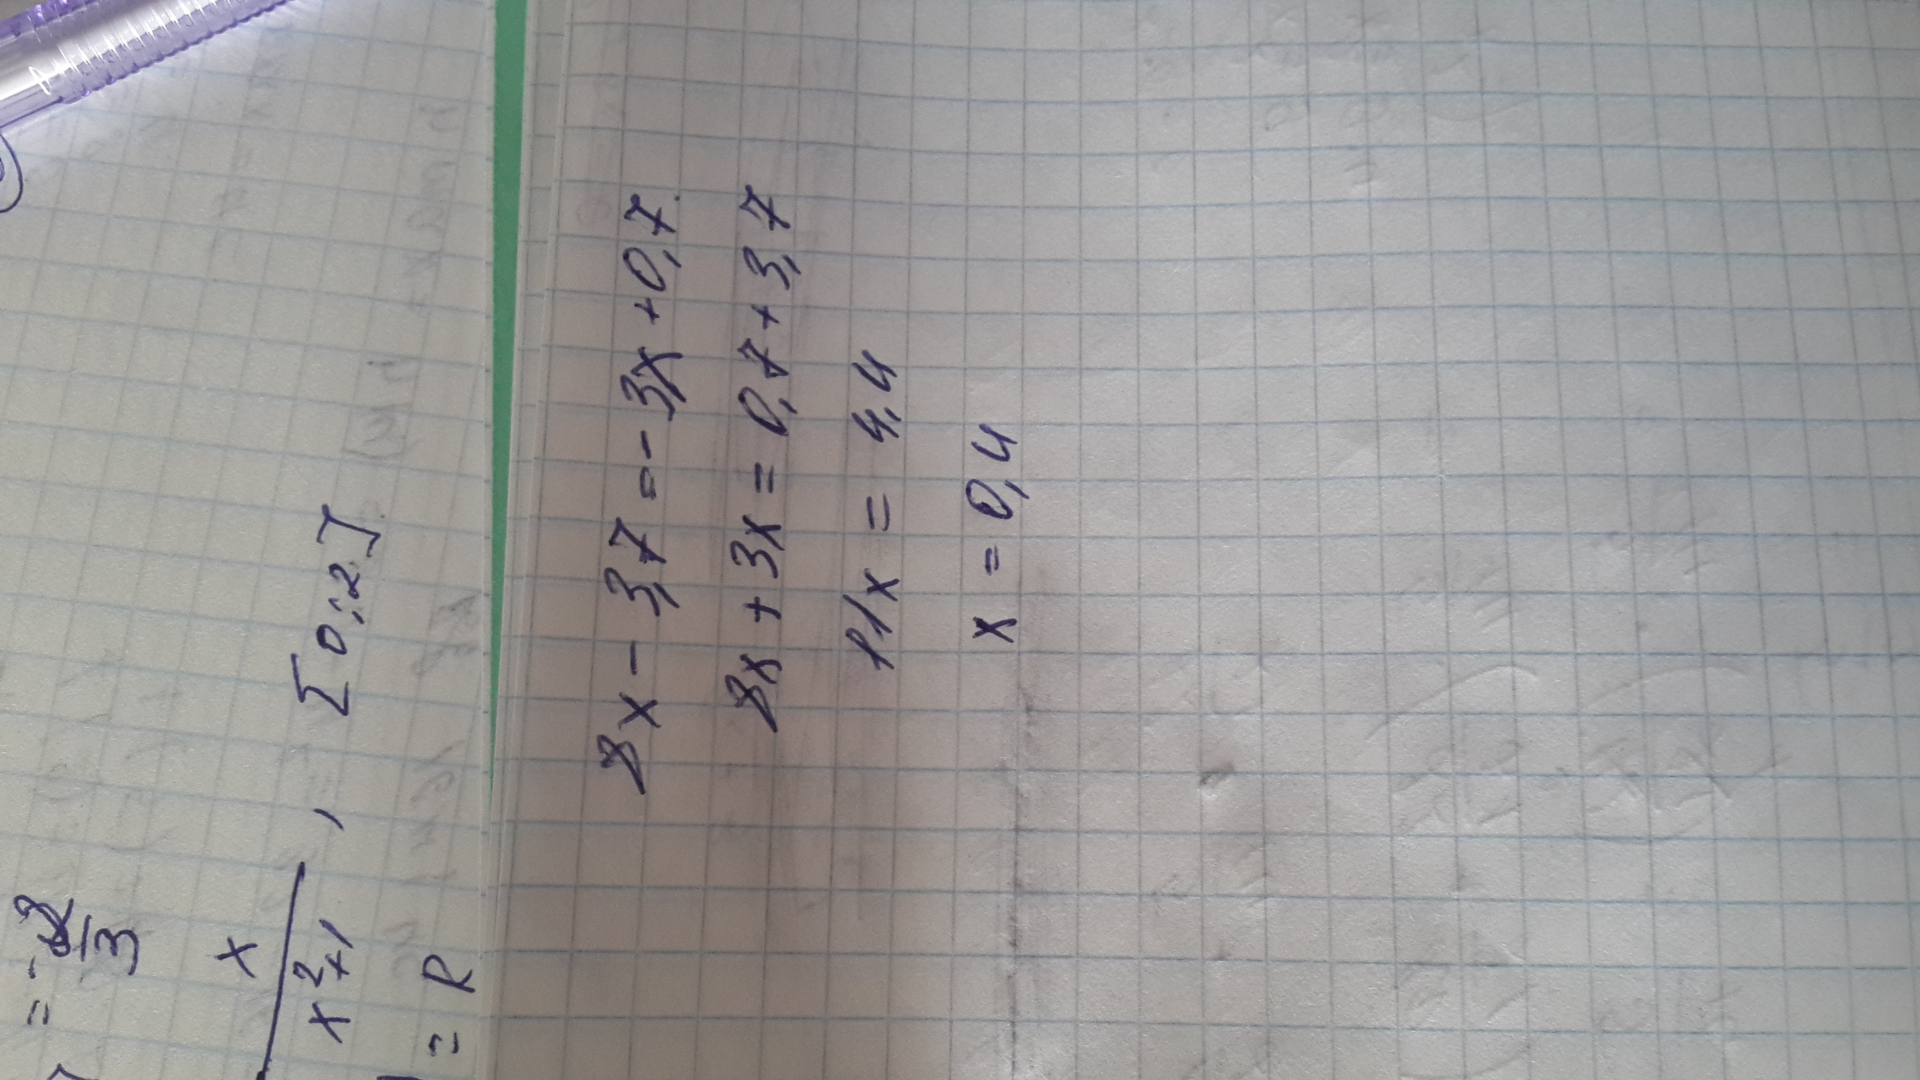 = - 2/3
x / x²+1 , [0; 2]
= R
8x - 3,7 = - 3x + 0,7
8x + 3x = 0,7 + 3,7
11x = 4,4
x = 0,4